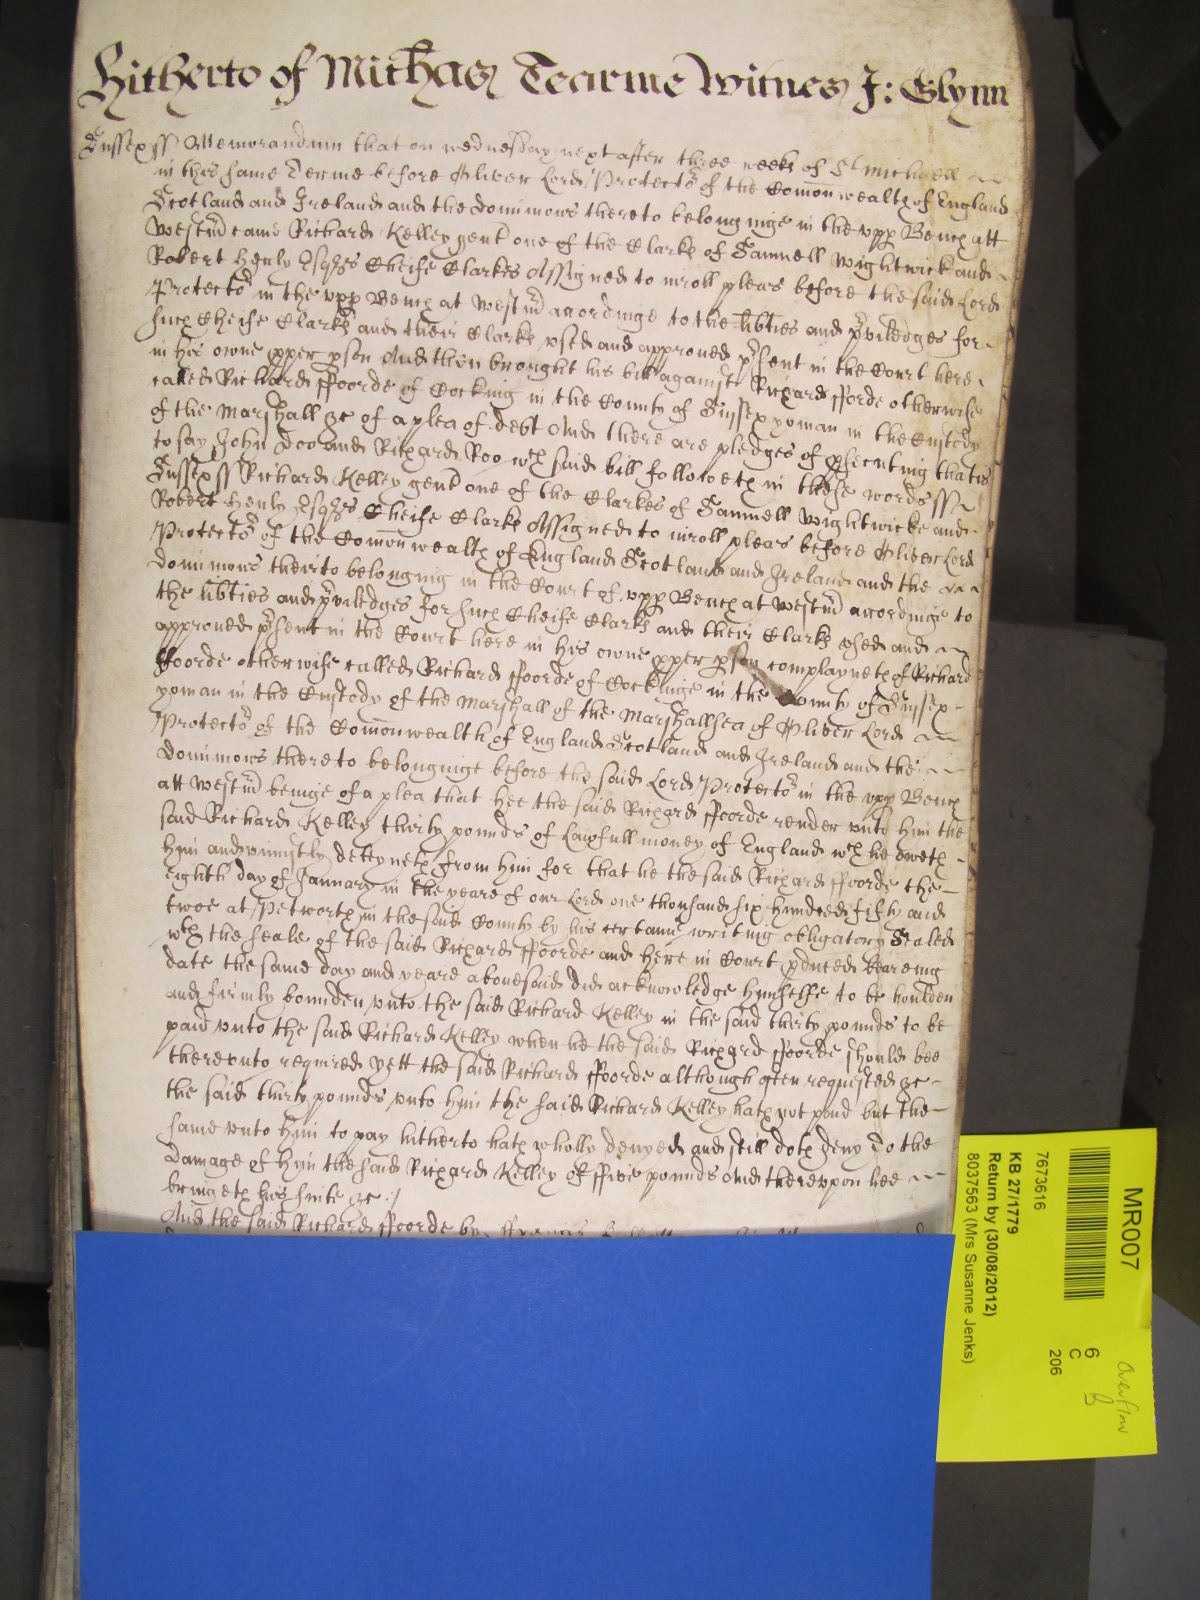 Hitherto of Michas Tearme Witnes J: Glynn
Sussex ss Memorandum that on wednesday next after three weeks of St Michaell
in this same Terme before Oliver Lord Protector of the Comonwealth of England
Scotland and Ireland and the dominions thereto belonginge in the upp Bench att
Westm came Richard Kelley gent one of the Clarks of Samuell Wightwick and
Robert Henly Esqrs Cheife Clarkes Assigned to inroll pleas before the said Lord
Protector in the upp Bench at Westm accordinge to the libties and priviledges for
such Cheife Clarks and their Clarks used and approved present in the Court here
in his owne pper pson And then brought his bill against Richard fforde otherwise
called Richard ffoorde of Cocking in the County of Sussex yoman in the Custody
of the Marshall &c of a plea of debt And there are pledges of psecuting thatis
to say John Doo and Richard Roo wch said bill followeth in these words ss
Sussex ss Richard Kelley gent one of the Clarkes of Samuell Wightwicke and
Robert Henly Esqrs Cheife Clarks Assigned to inroll pleas before Oliver Lord
Protector of the Comonwealth of England Scotland and Ireland and the
dominions theirto belonging in the Court of upp Bench at Westm accordinge to
the libties and priviledges for such Cheife Clarks and their Clarks used and
approved present in the Court here in his owne pper pson complayneth of Richard
ffoorde otherwise called Richard ffoorde of Cockinge in the County of Sussex
yoman in the Custody of the Marshall of the Marshallsea of Oliver Lord
Protector of the Comonwealth of England Scotland and Ireland and the
dominions thereto belonginge before the said Lord Protector in the upp Bench
att Westm beinge of a plea that hee the said Richard ffoorde render unto him the
said Richard Kelley thirty pounds of Lawfull money of England wch he oweth
him and uniustly detteyneth from him for that he the said Richard ffoorde the
eighth day of January in the yeare of our Lord one thousand six hundred fifty and
twoe at Petworth in the said County by his certaine writing obligatory Sealed
wth the seale of the said Richard ffoorde and here in Court pduced beareing
date the same day and yeare abovesaid did acknowledge himselfe to be houlden
and firmly bounden unto the said Richard Kelley in the said thirty pounds to be
paid unto the said Richard Kelley when he the said Richard ffoorde should bee
thereunto required yett the said Richard ffoorde although often requested &c
the said thirty pounds unto him the said Richard Kelley hath not paid but the
same unto him to pay hitherto hath wholly denyed and still doth deny To the
damage of him the said Richard Kelley of ffive pounds And thereupon hee
bringeth his suite &c
And the said Richard ffoorde by ffrancis
MR007
7673616
KB 27/1779
Return by (30/08/2012)
8037563 (Mrs Susanne Jenks)
6
C
206
Overflow